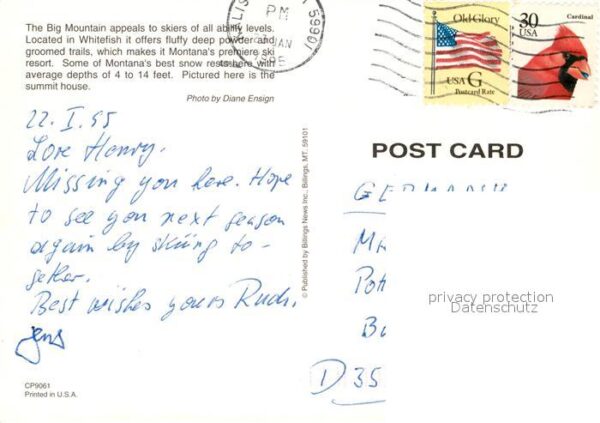 The Big Mountain appeals to skiers of all ability levels.
Located in Whitefish it offers fluffy deep powder and
groomed trails, which makes it Montana's premiere ski
resort. Some of Montana's best snow rests here with
average depths of 4 to 14 feet. Pictured here is the
summit house.
Photo by Diane Ensign
22. I. 95
Love Henry.
Missing you here. Hope
to see you next season
again by skiing to-
gether.
Best wishes yours Rudi.
Jens
CP9061
Printed in U.S.A.
© Published by Billings News Inc., Billings, MT. 59101
PM
JAN
1995
59901
Old Glory
USA G
Postcard Rate
30
USA
Cardinal
POST CARD
GERMANY
Ma
Pot
D 35
privacy protection
Datenschutz